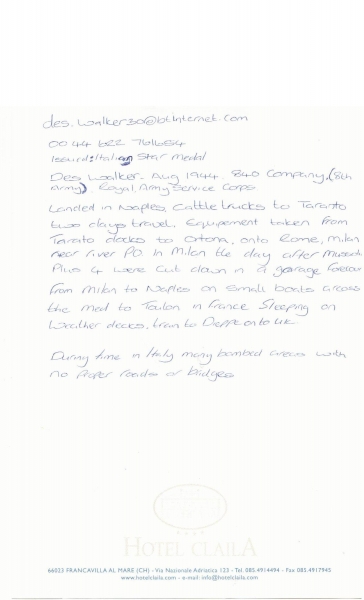 des.walker30@btinternet.com
0044 1622 761654
Issued: Italian Star Medal
Des Walker - Aug 1944. 840 Company. (8th
Army). Royal Army Service Corps.
Landed in Naples. Cattle trucks to Taranto
two days travel. Equipement taken from
Tarato docks to Ortona, onto Rome, Milan
near river PO. In Milan the day after
Plus 4 were cut down in a garage
From Milan to Naples on small boats across
the med to Toulon in France Sleeping on
decks, train to onto UK.
During time in Italy many bombed areas with
no proper roads or bridges
HOTEL CLAILA
66023 FRANCAVILLA AL MARE (CH) - Via Nazionale Adriatica 123 - Tel. 085.4914494 - Fax 085.4917945
www.hotelclaila.com - e-mail: info@hotelclaila.com